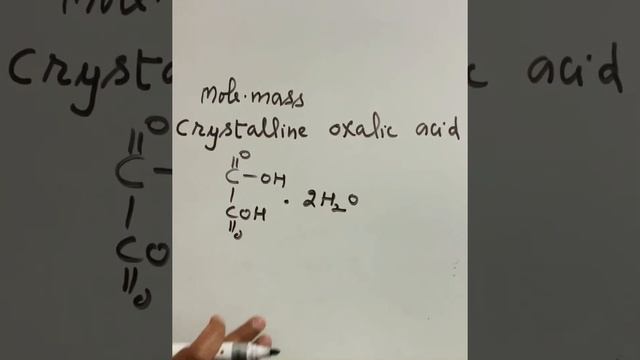 Mole.mass
Crystalline oxalic acid
O
||
C-OH
|
COH . 2H2O
||
O